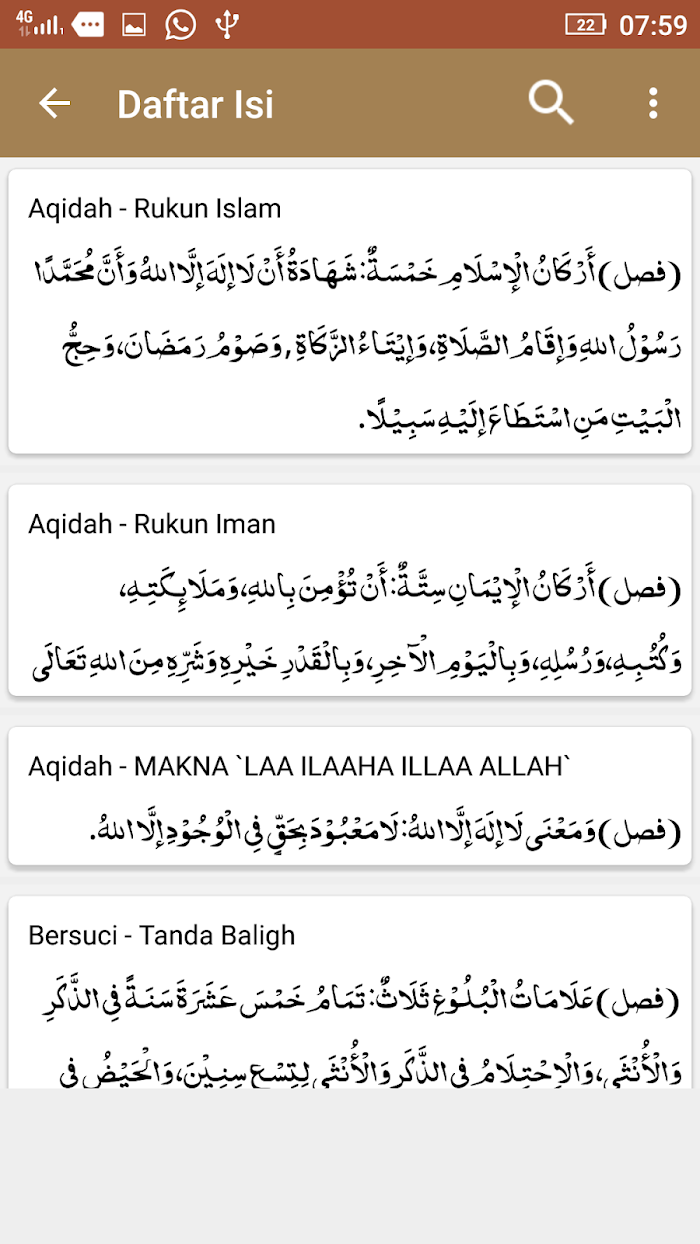 4G
22
07:59
Daftar Isi
Aqidah - Rukun Islam
(فصل) أَرْكَانُ الْإِسْلَامِ خَمْسَةٌ: شَهَادَةُ أَنْ لَا إِلَهَ إِلَّا اللهُ وَأَنَّ مُحَمَّدًا
رَسُوْلُ اللهِ وَإِقَامُ الصَّلَاةِ، وَإِيْتَاءُ الزَّكَاةِ, وَصَوْمُ رَمَضَانَ، وَحِجُّ
الْبَيْتِ مَنِ اسْتَطَاعَ إِلَيْهِ سَبِيْلًا.
Aqidah - Rukun Iman
(فصل) أَرْكَانُ الْإِيْمَانِ سِتَّةٌ: أَنْ تُؤْمِنَ بِاللهِ، وَمَلَائِكَتِهِ،
وَكُتُبِهِ، وَرُسُلِهِ، وَبِالْيَوْمِ الْآخِرِ، وَبِالْقَدْرِ خَيْرِهِ وَشَرِّهِ مِنَ اللهِ تَعَالَى
Aqidah - MAKNA `LAA ILAAHA ILLAA ALLAH`
(فصل) وَمَعْنَى لَا إِلَهَ إِلَّا اللهُ: لَا مَعْبُوْدَ بِحَقٍّ فِي الْوُجُوْدِ إِلَّا اللهُ.
Bersuci - Tanda Baligh
(فصل) عَلَامَاتُ الْبُلُوْغِ ثَلَاثٌ: تَمَامُ خَمْسَ عَشَرَةَ سَنَةً فِي الذَّكَرِ
وَالْأُنْثَى، وَالْاِحْتِلَامُ فِي الذَّكَرِ وَالْأُنْثَى لِتِسْعِ سِنِيْنَ، وَالْحَيْضُ فِي